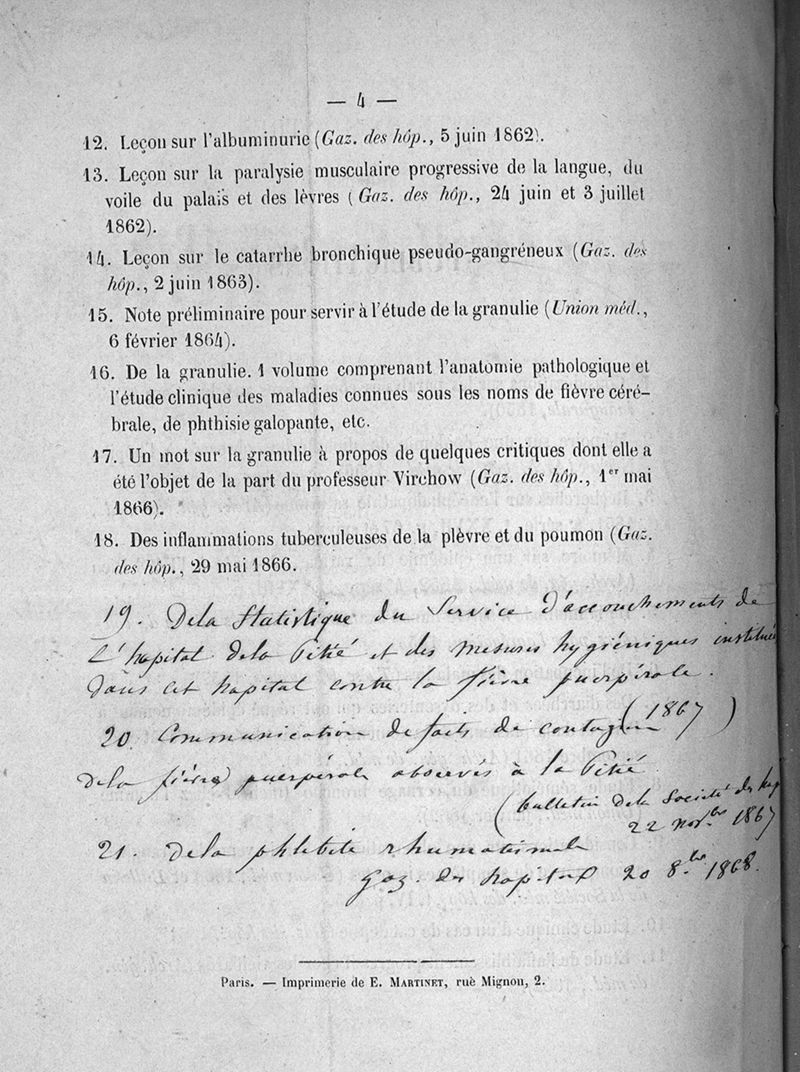 — 4 —
12. Leçon sur l'albuminurie (Gaz. des hôp., 5 juin 1862).
13. Leçon sur la paralysie musculaire progressive de la langue, du
voile du palais et des lèvres (Gaz. des hôp., 24 juin et 3 juillet
1862).
14. Leçon sur le catarrhe bronchique pseudo-gangréneux (Gaz. des
hôp., 2 juin 1863).
15. Note préliminaire pour servir à l'étude de la granulie (Union méd.,
6 février 1864).
16. De la granulie. 1 volume comprenant l'anatomie pathologique et
l'étude clinique des maladies connues sous les noms de fièvre céré-
brale, de phthisie galopante, etc.
17. Un mot sur la granulie à propos de quelques critiques dont elle a
été l'objet de la part du professeur Virchow (Gaz. des hôp., 1er mai
1866).
18. Des inflammations tuberculeuses de la plèvre et du poumon (Gaz.
des hôp., 29 mai 1866.
19. Dela Statistique du Service d'accouchements de
L'hopital dela Pitié et des mesures hygiéniques instituées
dans cet hopital contre la fièvre puerpérale.
(1867)
20. Communication de faits de contagion
dela fièvre puerpérale observés à la Pitié
(bulletin dela Société des hop
22 novbre 1867
21. Dela phlébite rhumatismale
Gaz. des hopitaux 20 8bre 1868.
Paris. — Imprimerie de E. MARTINET, rue Mignon, 2.